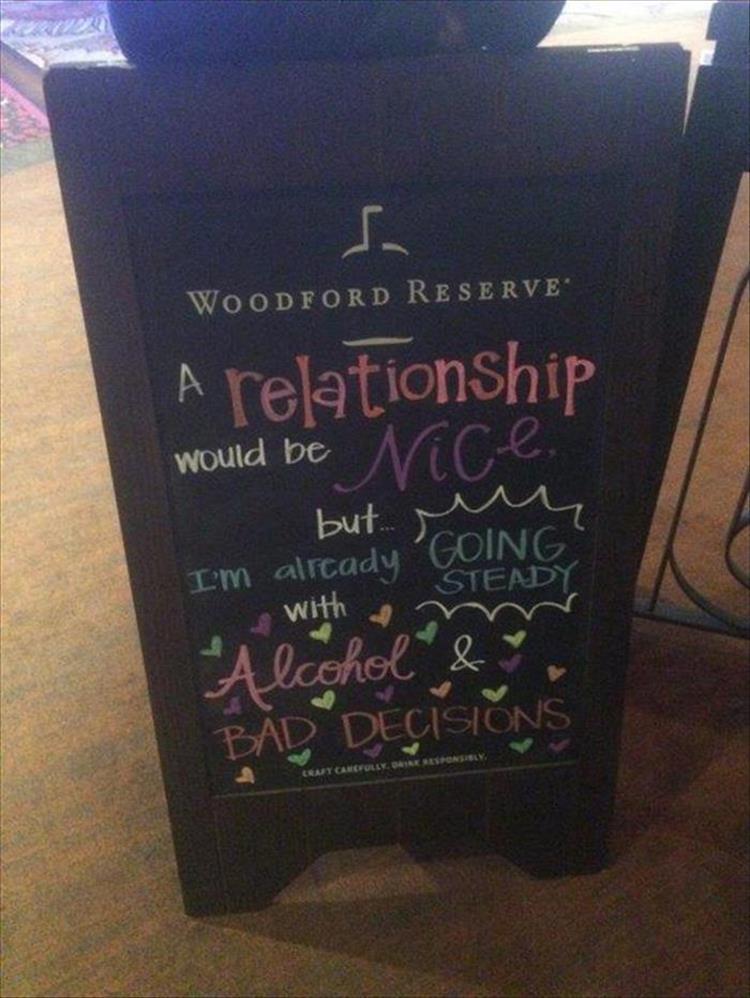 WOODFORD RESERVE®
A relationship
would be Nice.
but...
I'm already GOING
STEADY
with
Alcohol &
BAD DECISIONS
CRAFT CAREFULLY. DRINK RESPONSIBLY.